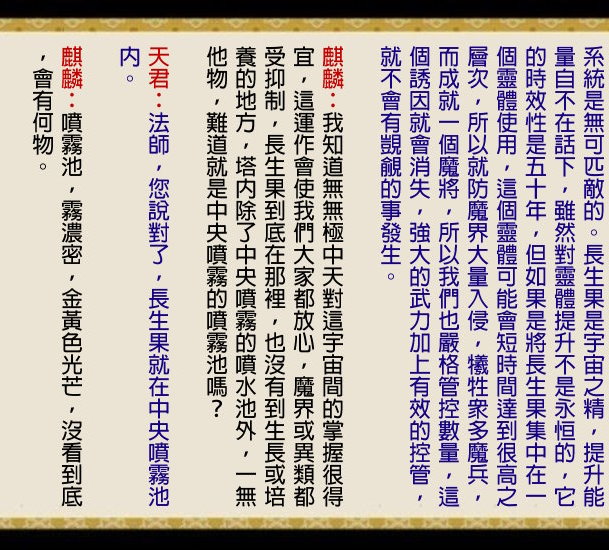 系統是無可匹敵的。長生果是宇宙之精，提升能
量自不在話下，雖然對靈體提升不是永恒的，它
的時效性是五十年，但如果是將長生果集中在一
個靈體使用，這個靈體可能會短時間達到很高之
層次，所以就防魔界大量入侵，犧牲衆多魔兵，
而成就一個魔將，所以我們也嚴格管控數量，這
個誘因就會消失，強大的武力加上有效的控管，
就不會有覬覦的事發生。
麒麟：我知道無無極中天對這宇宙間的掌握很得
宜，這運作會使我們大家都放心，魔界或異類都
受抑制，長生果到底在那裡，也沒有到生長或培
養的地方，塔內除了中央噴霧的噴水池外，一無
他物，難道就是中央噴霧的噴霧池嗎？
天君：法師，您說對了，長生果就在中央噴霧池
內。
麒麟：噴霧池，霧濃密，金黃色光芒，沒看到底
，會有何物。